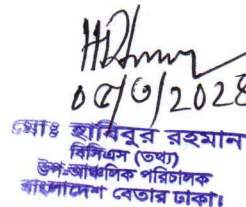 ০৫/৩/2024
মোঃ হাবিবুর রহমান
বিসিএস (তথ্য)
উপ-আঞ্চলিক পরিচালক
বাংলাদেশ বেতার ঢাকা।